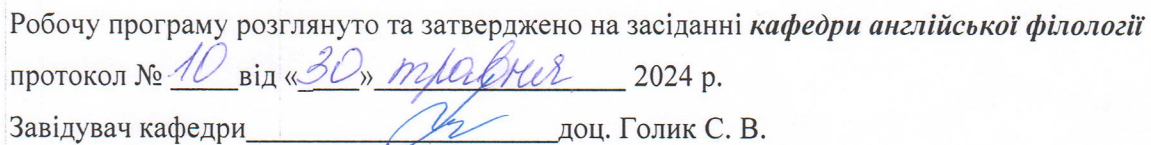 Робочу програму розглянуто та затверджено на засіданні кафедри англійської філології
протокол № 10 від «30» травня 2024 р.
Завідувач кафедри доц. Голик С. В.